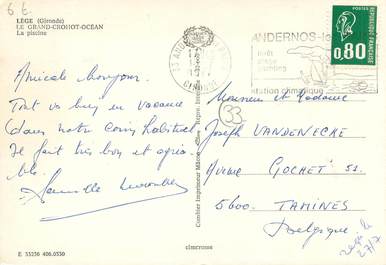 6 €
LÈGE (Gironde)
LE GRAND-CROHOT-OCÉAN
La piscine
Amicale bonjour.
Tout va bien en vacance
dans notre coin habituel
Il fait très bon et agréa-
ble.
Famille
E 33236 406.0330
Combier Imprimeur Mâcon
cimcrome
33 AND
GIRONDE
ANDERNOS-le
forêt
plage
station climatique
POSTES
0,80
33
Monsieur et Madame
Joseph VANDENECKE
Avenue GOCHET 51.
5600. TAMINES
Belgique
reçu le
27/7